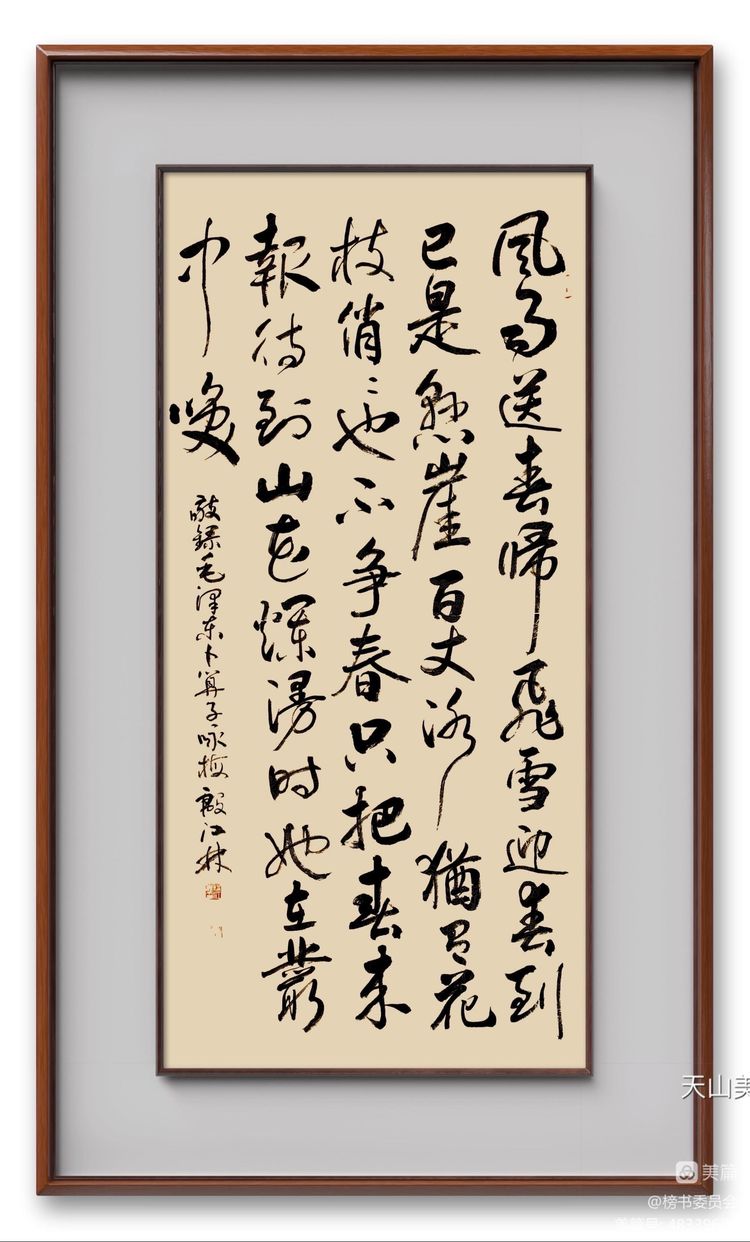 风雨送春帰飛雪迎春到
已是懸崖百丈冰猶有花
枝俏〻也不争春只把春来
報待到山花爛漫时她在叢
中咲
敬錄毛澤东卜算子咏梅 殷江林
天山美
美篇
@榜书委员会